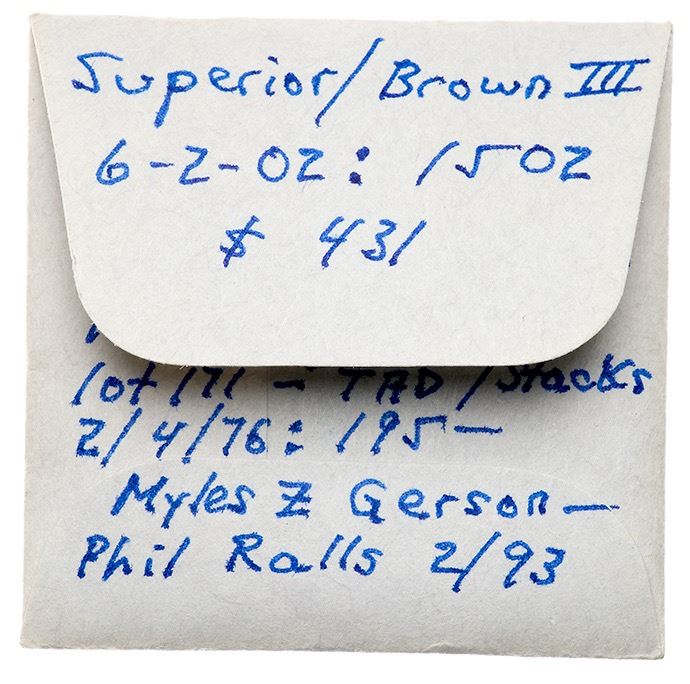 Superior/Brown III
6-2-02: 1502
$ 431
lot 171 - TAD/Stacks
2/4/76: 195—
Myles Z Gerson—
Phil Ralls 2/93